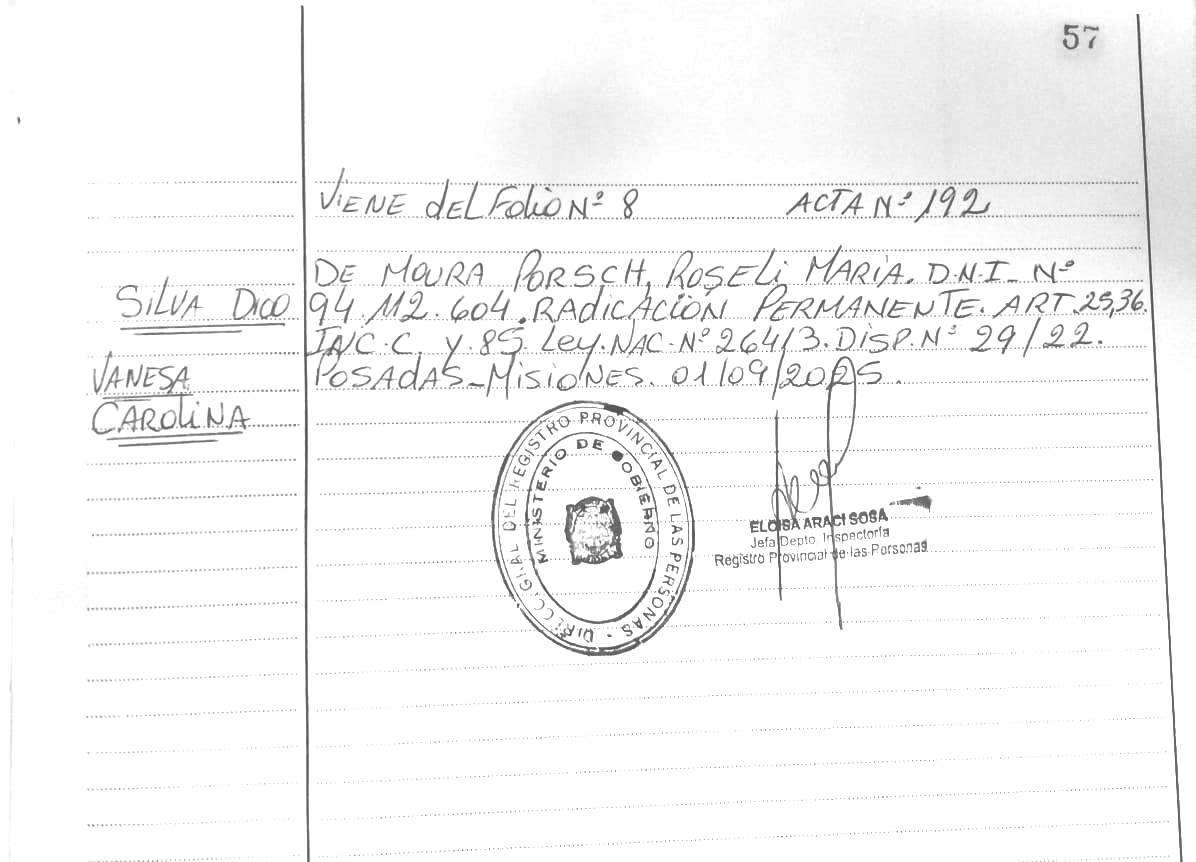 57
ViENE dEL Folio Nº 8 ACTA Nº 192
SiLVA Dico
VANESA
CAROLiNA
DE MOURA PORSCH, ROSELi MARÍA. D.N.I_ Nº
94.112.604. RADICACIÓN PERMANENTE. ART. 25,36.
INC. C. y. 85. Ley. NAC. Nº 26413. DiSP. Nº 29/22.
POSADAS_MisioNES. 01/09/2025.
DIRECC. GRAL. DEL REGISTRO PROVINCIAL DE LAS PERSONAS -
MINISTERIO DE GOBIERNO
ELOISA ARACI SOSA
Jefa Depto. Inspectoría
Registro Provincial de las Personas